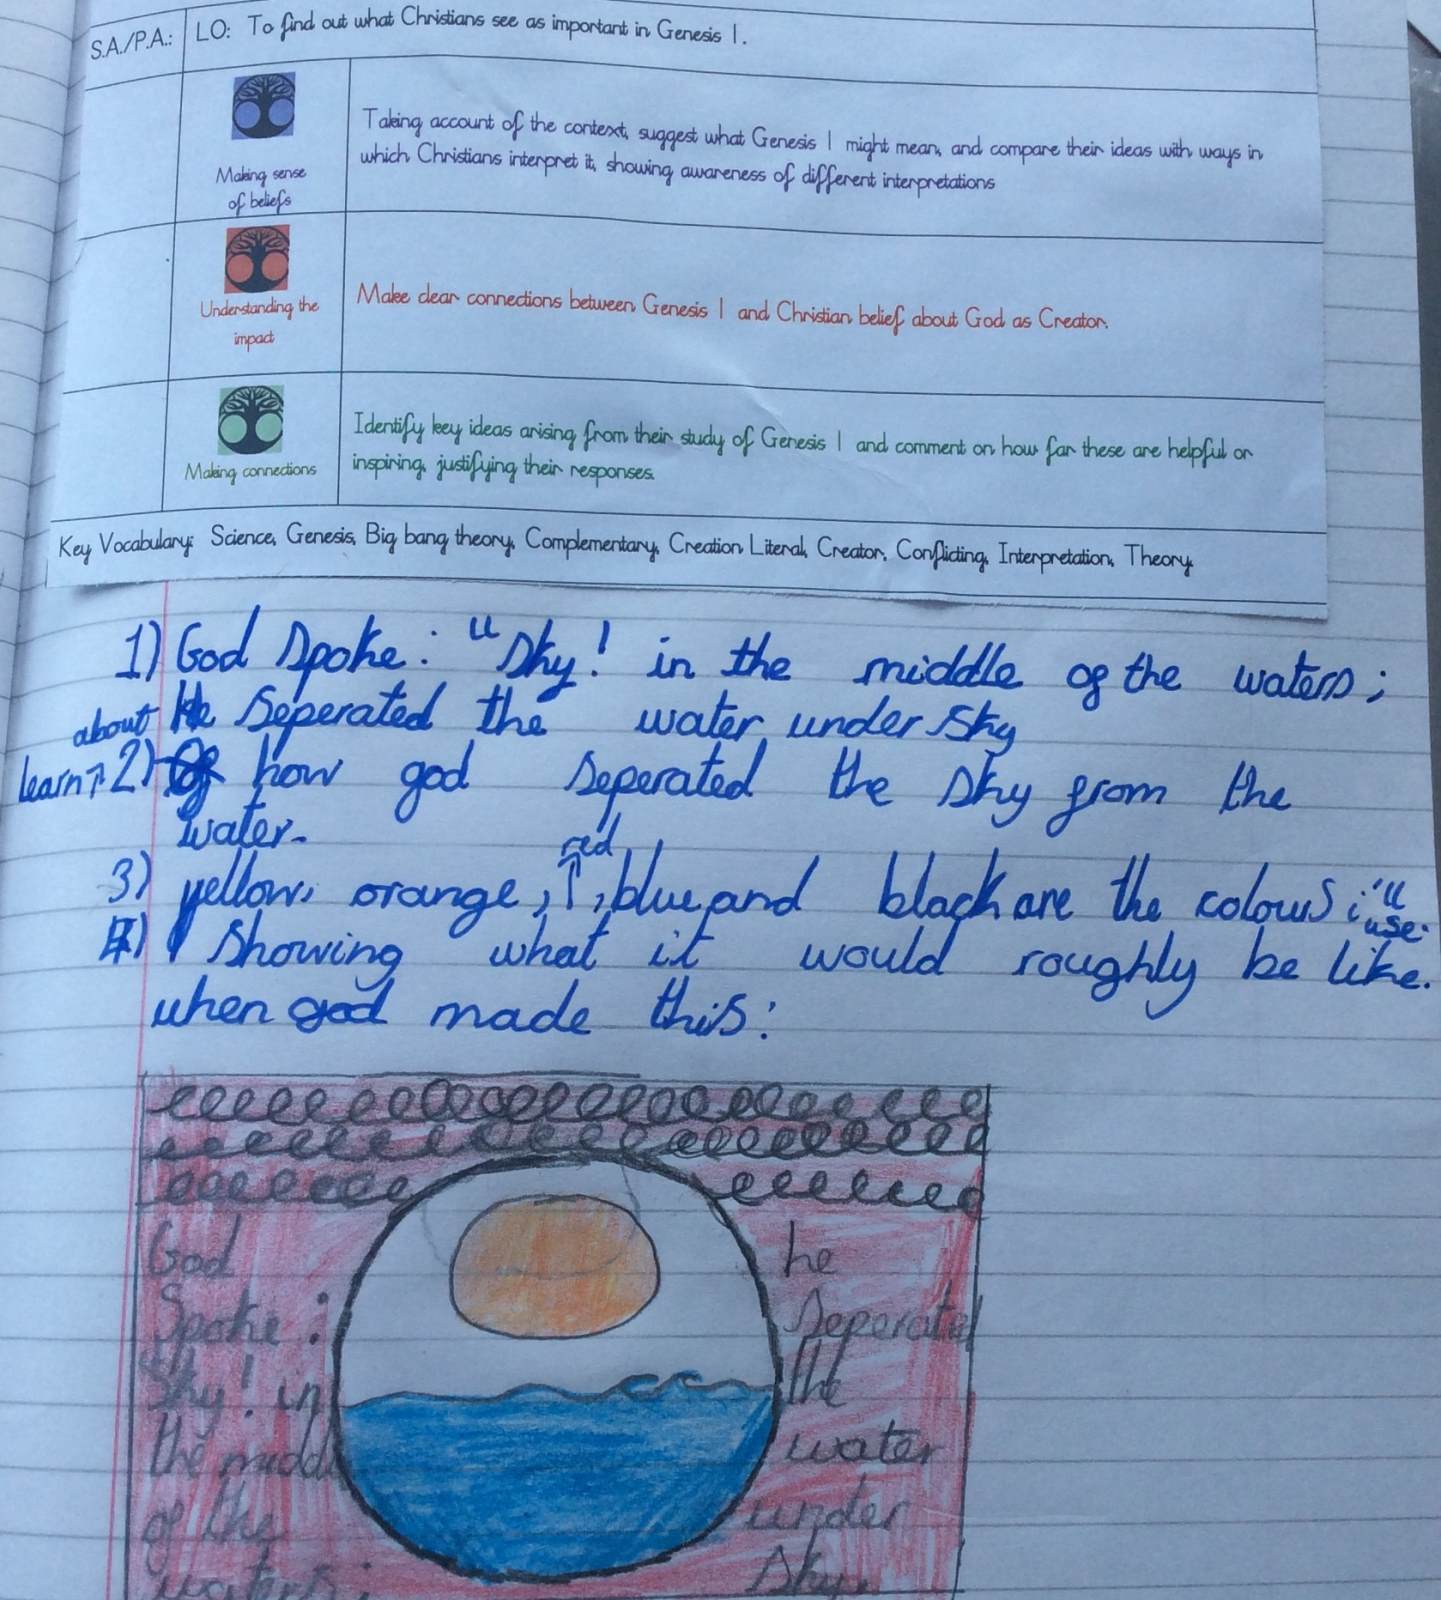 S.A./P.A.: LO: To find out what Christians see as important in Genesis 1.
Making sense
of beliefs
Taking account of the context, suggest what Genesis 1 might mean, and compare their ideas with ways in
which Christians interpret it, showing awareness of different interpretations
Understanding the
impact
Make clear connections between Genesis 1 and Christian belief about God as Creator.
Making connections
Identify key ideas arising from their study of Genesis 1 and comment on how far these are helpful or
inspiring, justifying their responses.
Key Vocabulary: Science, Genesis, Big bang theory, Complementary, Creation Literal, Creator, Conflicting, Interpretation, Theory
1) God spoke: "sky! in the middle of the waters;
He seperated the water under sky
about
learn 2) how god seperated the sky from the
water.
red
3) yellow, orange, , blue, and black are the colours i'll
use.
4) Showing what it would roughly be like.
when god made this:
God
Spoke:
Sky! in
the middle
of the
waters;
he
seperated
the
water
under
sky.